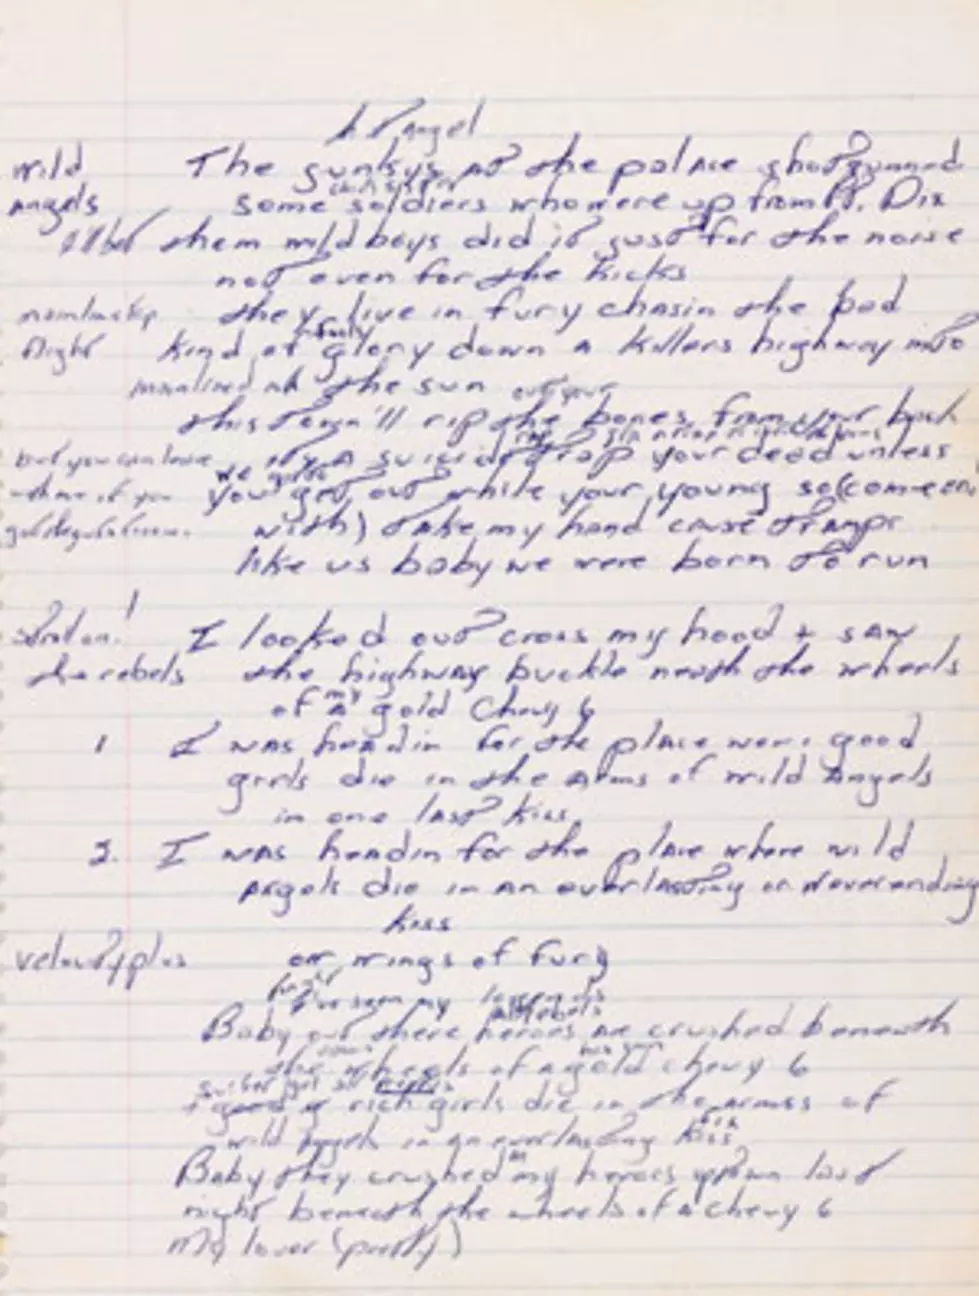 Angel
wild The gunkys at the palace shotgunned
angels some soldiers who were up from Ft. Dix
them wild boys did it just for the noise
not even for the kicks
they live in fury chasin the bad
flight kind of glory down a killers highway into
the sun
out your
this town'll rip the bones from your back
but you can leave its a suicide trap your dead unless
with me if you you get out while your young so (come on
with) take my hand cause tramps
like us baby we were born to run
I looked out cross my hood + saw
the rebels the highway buckle neath the wheels
my
of a gold Chevy 6
1 I was headin for the place were good
girls die in the arms of wild angels
in one last kiss
2. I was headin for the place where wild
angels die in an everlasting or neverending
kiss
on wings of fury
I've seen my
Baby out there heroes are crushed beneath
the wheels of a gold chevy 6
rich girls die in the arms of
wild angels in an everlasting kiss
Baby they crushed my heroes down last
night beneath the wheels of a chevy 6
My lover (pretty)